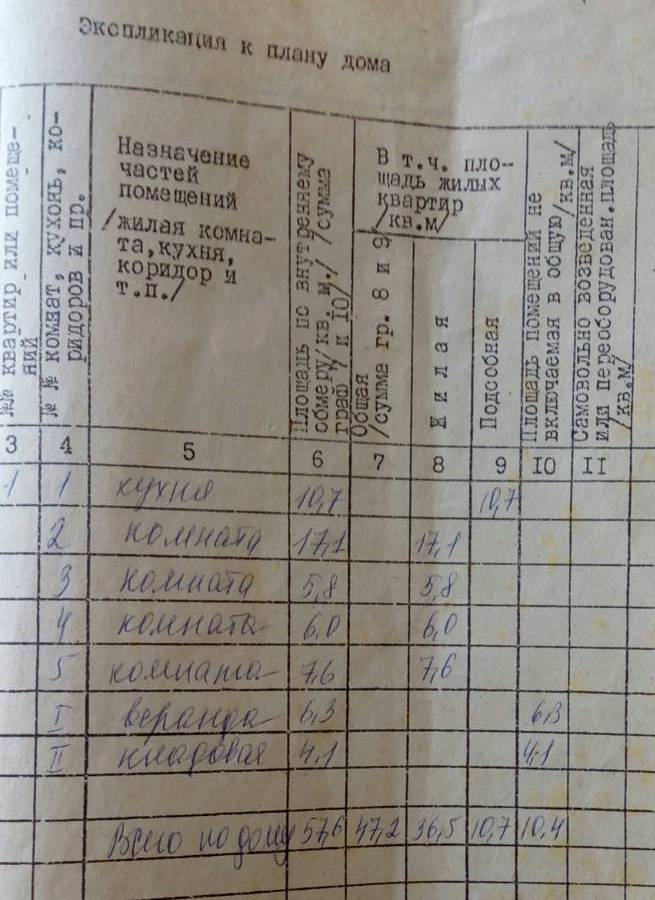 Экспликация к плану дома
№№ квартир или помеще-
ний
№№ комнат, кухонь, ко-
ридоров и пр.
Назначение
частей
помещений
/жилая комна-
та, кухня,
коридор и
т.п./
Площадь по внутреннему
обмеру/кв. м./ /сумма
граф 7 и 10/
В т.ч. пло-
щадь жилых
квартир
/кв.м/
Общая
/сумма гр. 8 и 9/
Жилая
Подсобная
Площадь помещений не
включаемая в общую/кв.м/
Самовольно возведенная
или переоборудован.площадь
/кв.м/
3 4 5 6 7 8 9 IO II
1 1 кухня 10,7 10,7
2 комната 17,1 17,1
3 комната 5,8 5,8
4 комната 6,0 6,0
5 комната 7,6 7,6
I веранда 6,3 6,3
II кладовая 4,1 4,1
Всего по дому 57,6 47,2 36,5 10,7 10,4